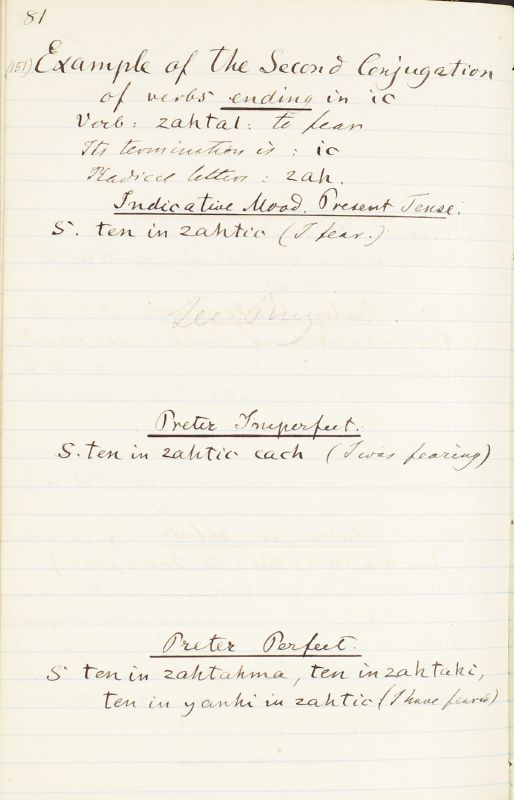 81
(151) Example of the Second Conjugation
of verbs ending in ic
Verb: zahtal: to fear
Its termination is: ic
Radical letters: zah.
Indicative Mood. Present Tense.
S. ten in zahtic (I fear.)
See Ruz
Preter Imperfect.
S. ten in zahtic cach (I was fearing)
Preter Perfect.
S ten in zahtahma, ten in zahtahi,
ten in yanhi in zahtic (I have feared)